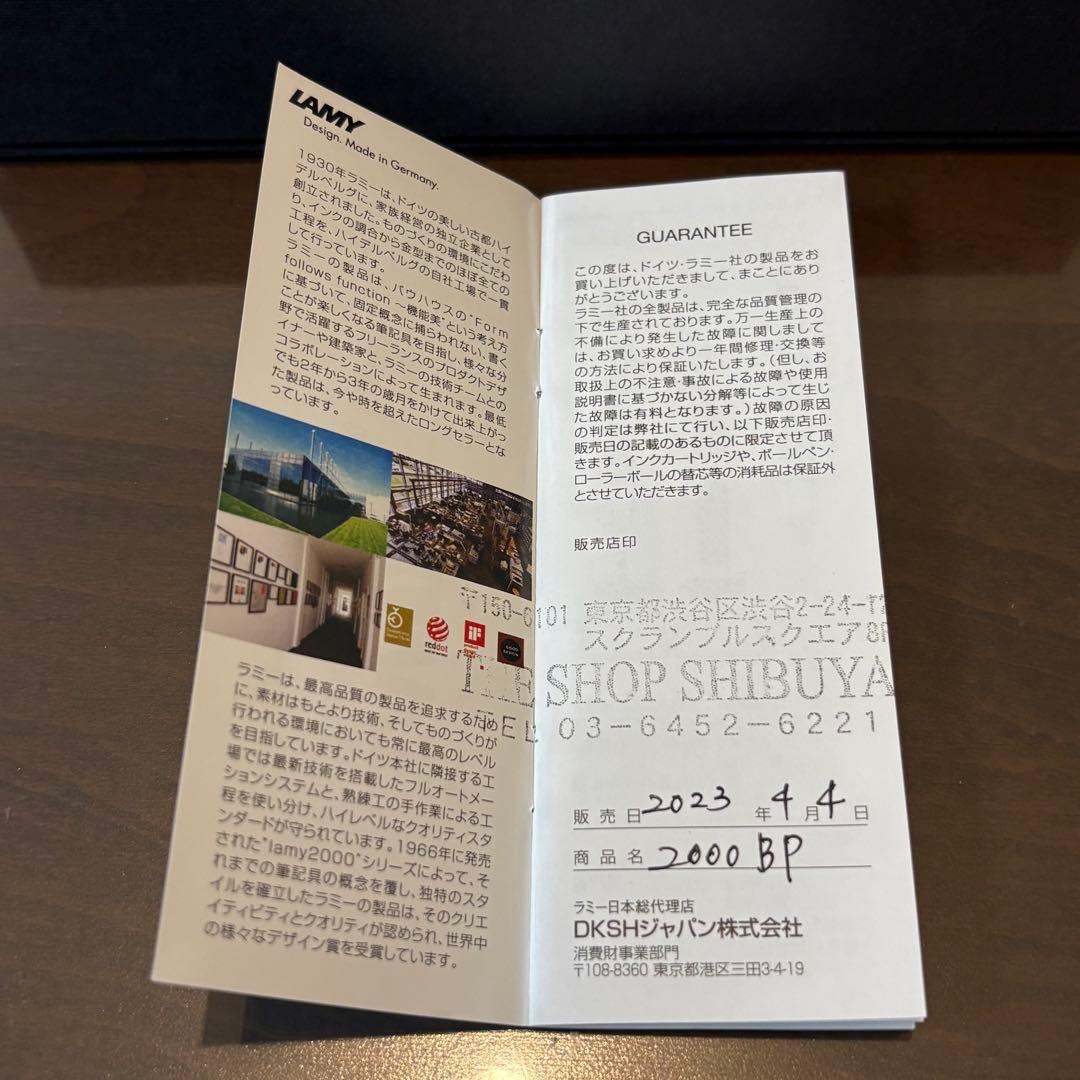 LAMY
Design. Made in Germany.
1930年ラミーは、ドイツの美しい古都ハイ
デルベルグに、家族経営の独立企業として
創立されました。ものづくりの環境にこだわ
り、インクの調合から金型までのほぼ全ての
工程を、ハイデルベルグの自社工場で一貫
して行っています。
ラミーの製品は、バウハウスの"Form
follows function ～機能美"という考え方
に基づいて、固定概念に捕らわれない、書く
ことが楽しくなる筆記具を目指し、様々な分
野で活躍するフリーランスのプロダクトデザ
イナーや建築家と、ラミーの技術チームとの
コラボレーションによって生まれます。最低
でも2年から3年の歳月をかけて出来上がっ
た製品は、今や時を超えたロングセラーとな
っています。
reddot
iF
product
GOOD
DESIGN
ラミーは、最高品質の製品を追求するため
に、素材はもとより技術、そしてものづくりが
行われる環境においても常に最高のレベル
を目指しています。ドイツ本社に隣接する工
場では最新技術を搭載したフルオートメー
ションシステムと、熟練工の手作業による工
程を使い分け、ハイレベルなクオリティスタ
ンダードが守られています。1966年に発売
された"lamy2000"シリーズによって、そ
れまでの筆記具の概念を覆し、独特のスタ
イルを確立したラミーの製品は、そのクリエ
イティビティとクオリティが認められ、世界中
の様々なデザイン賞を受賞しています。
GUARANTEE
この度は、ドイツ・ラミー社の製品をお
買い上げいただきまして、まことにあり
がとうございます。
ラミー社の全製品は、完全な品質管理の
下で生産されております。万一生産上の
不備により発生した故障に関しまして
は、お買い求めより一年間修理・交換等
の方法により保証いたします。（但し、お
取扱上の不注意・事故による故障や使用
説明書に基づかない分解等によって生じ
た故障は有料となります。）故障の原因
の判定は弊社にて行い、以下販売店印・
販売日の記載のあるものに限定させて頂
きます。インクカートリッジや、ボールペン・
ローラーボールの替芯等の消耗品は保証外
とさせていただきます。
販売店印
〒150-6101 東京都渋谷区渋谷2-24-12
スクランブルスクエア8F
THE SHOP SHIBUYA
TEL 03-6452-6221
販売日 2023 年 4 月 4 日
商品名 2000 BP
ラミー日本総代理店
DKSHジャパン株式会社
消費財事業部門
〒108-8360 東京都港区三田3-4-19